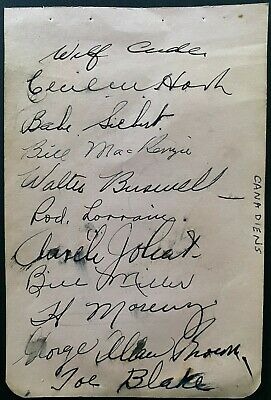 Wilf Cude
Cecil M Hart
Babe Siebert.
Bill MacKenzie
Walter Buswell
Rod. Lorrain.
Aurèle Joliat.
Bill Miller
H Morenz
George Allan Brown.
Toe Blake
CANADIENS